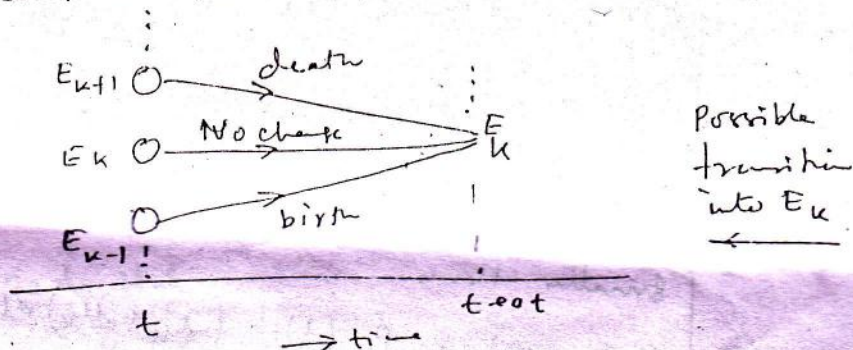 E k+1
death
E k
No change
E k
E k-1
birth
Possible
transition
into E k
t
t
→ time